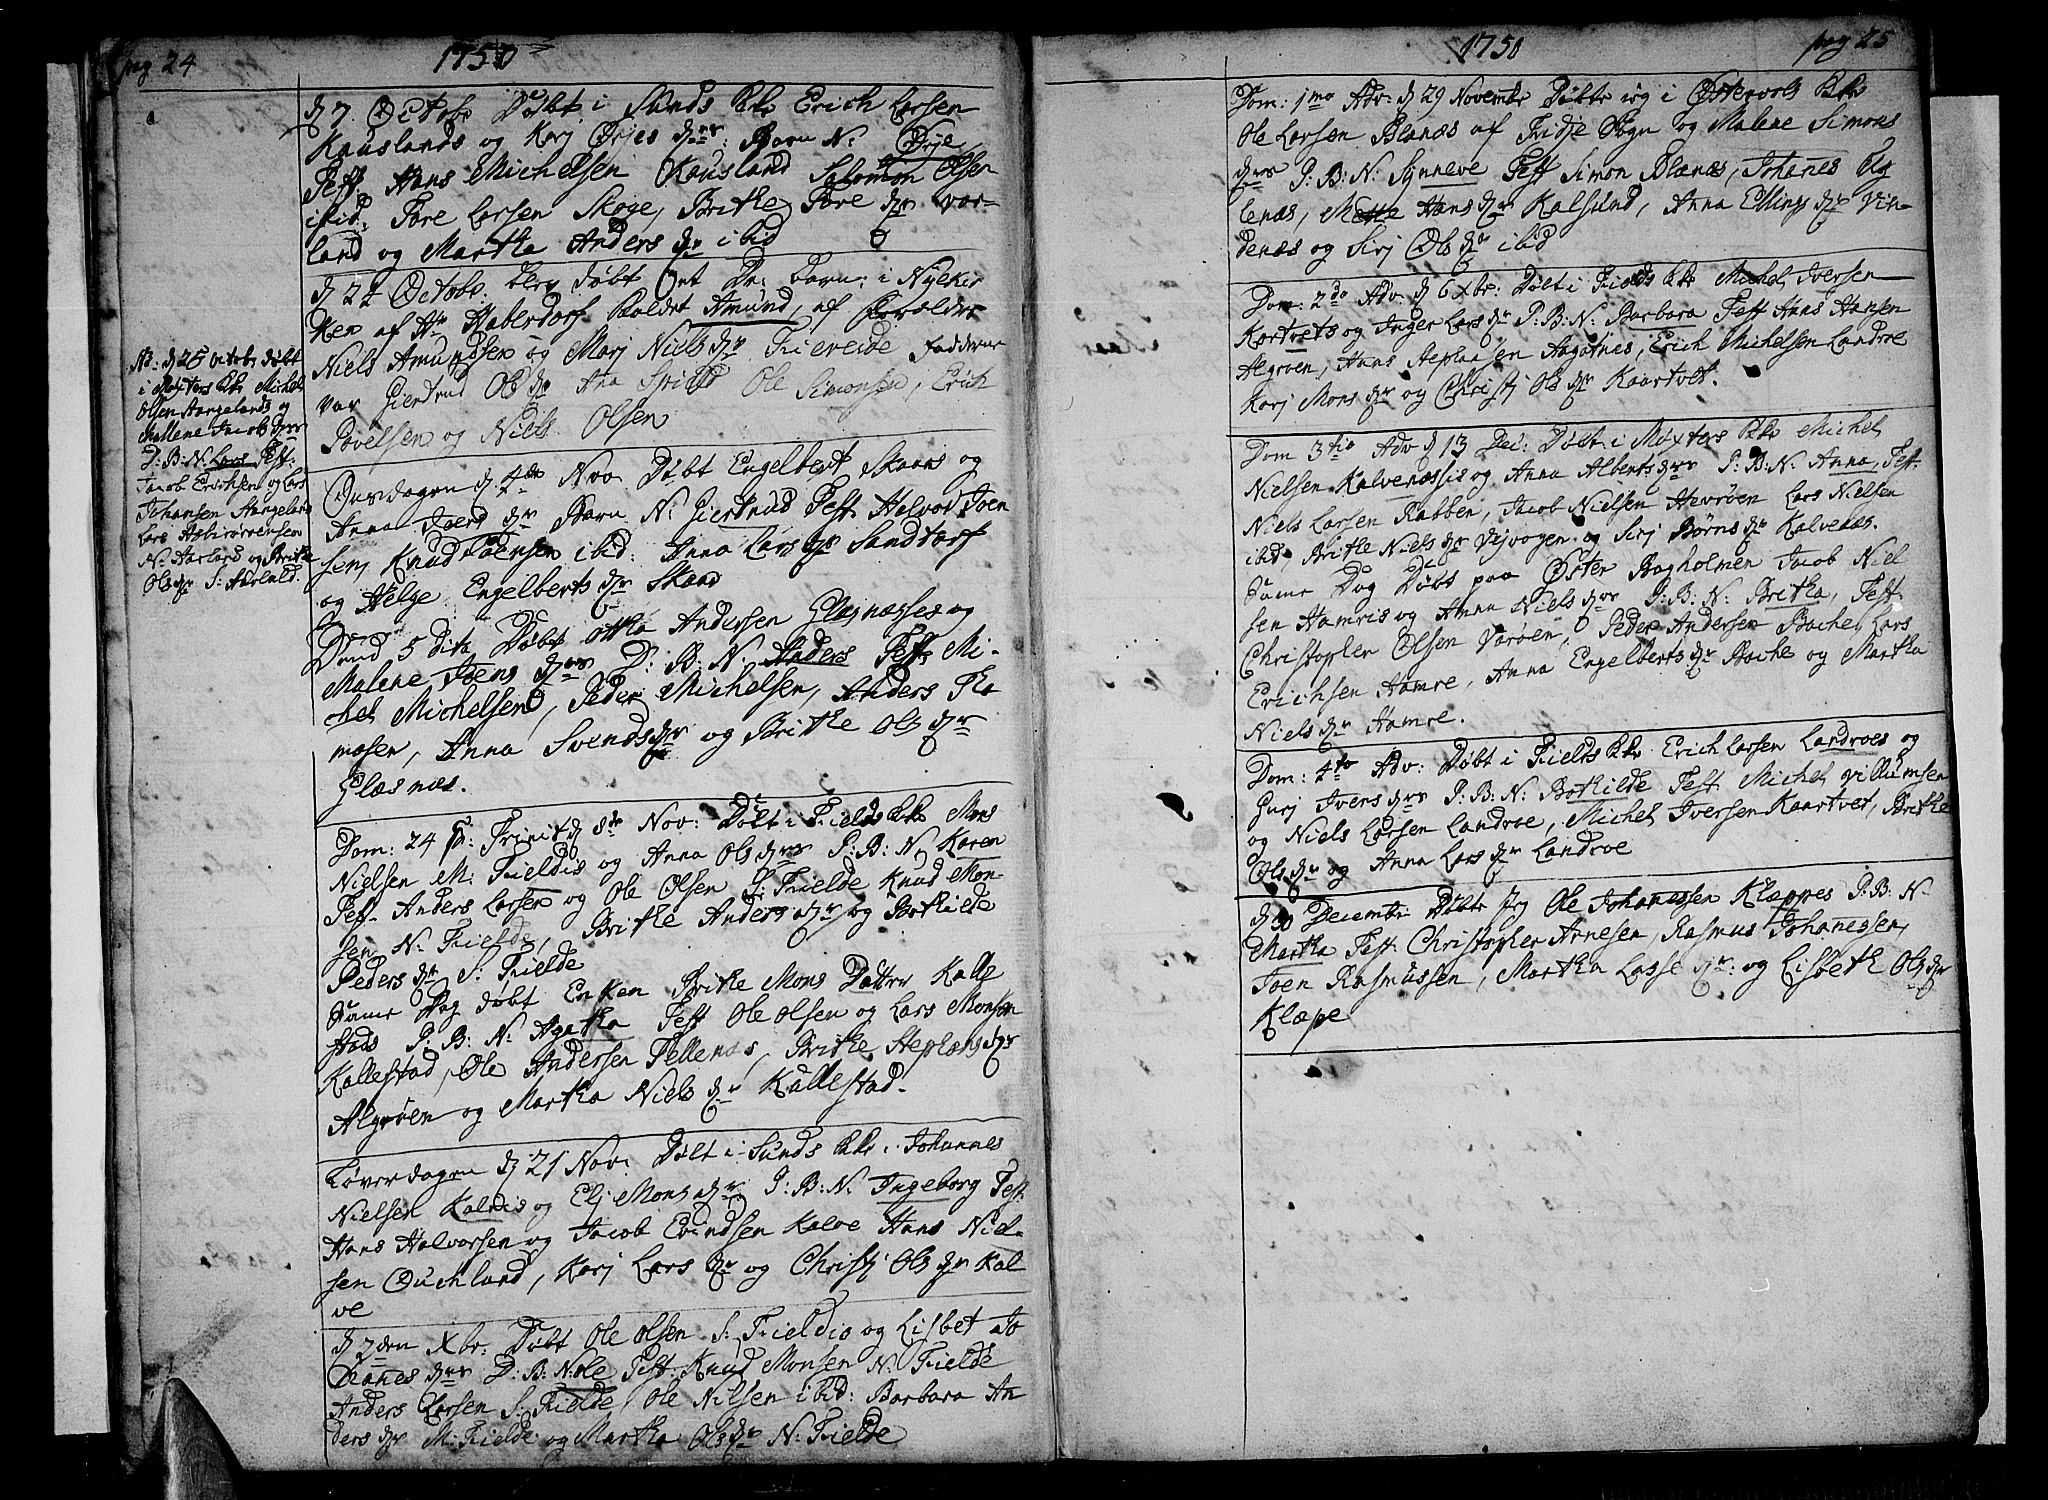 pag 24
1750
d 7 Octobr Døbt i Sunds Kke Erich Larsen
Kauslands og Karj Ørjes dtr: Barn N: Ørje
Test. Hans Michelsen Kausland Salomon Olsen
ibid: Tore Larsen Skoge, Brithe Tore dtr Vor-
land og Martha Anders dtr ibid
d 22 Octobr: blev døbt Et Dr: barn: i Nykir
ken af Hr Haberdorf kaldet Amund, af Forældre
Niels Amundsen og Marj Niels dtr Trieveide Fadderne
var Giertrud Ols dtr Ana Spilld Ole Simonsen, Erich
Povelsen og Niels Olsen
No: d 25 Octobr døbt
i Møxters Kke Michel
Olsen Aangelands og
Mallene Jacobs dtr
P: B: N. Lars Test:
Jacob Erichsen og Lars
Johansen Aangeland
Lars Asbiørnsen
N: Aarland og Brithe
Ols dtr S: Aarland.
Onsdagen d. 4de Nov Døbt Engelbert Skaars og
Anna Joens dtr Barn N: Giertrud Test. Halvor Joen
sen, Knud Joensen ibid: Anna Lars dtr Sandtorf
og Helge Engelberts dtr Skaar
Dend 5 Dito Døbt Otto Andersen Glesnasses og
Malene Joens dtr P: B: N: Anders Test. Mi-
chel Michelsen, Peder Michelsen, Anders Tho
masen, Anna Svends dtr og Brithe Ols dtr
Glæsnæs.
Dom: 24 p: Trinit d 8de Nov: Døbt i Fields Kke Mons
Nielsen M: Fieldis og Anna Ols dtr P: B: N: Karen
Test. Anders Larsen og Ole Olsen S: Fielde Knud Mon-
sen N: Fielde, Brithe Anders dtr og Bothilde
Peders dtr S: Fielde
Same Dag døbt Enken Brithe Mons Datter Kalle
stads P: B: N: Agatha Test Ole Olsen og Lars Monsen
Kallestad, Ole Andersen Tellenæs, Brithe Steplens dtr
Algrøen og Martha Niels dtr Kallestad.
Løverdagen d 21 Nov: Døbt i Sunds Kke: Johannes
Nielsen Kalvis og Elj Mons dtr P: B: N: Ingeborg Test.
Hans Halvorsen og Jacob Evindsen Kalve Hans Niel-
sen Quehland, Karj Lars dtr og Christj Ols dtr Kal
ve
d 2den Xbr: Døbt Ole Olsen S: Fieldis og Lisbet Jo
hanes dtr P: B: N: Ole Test. Knud Monsen N: Fielde
Anders Larsen S: Fielde, Ole Nilsen ibid: Barbara An
ders dtr M: Fielde og Martha Ols dtr N: Fielde
1750
pag 25
Dom: 1mo Adv: d 29 Novembr Døbte jeg i Østervols Kke
Ole Larsen Blænæs af Fidje Sogn og Malene Simons
dtr P: B: N: Synneve Test Simon Blænæs, Johanes Ug
lenæs, Mette Hans dtr Kalsund, Anna Ellings dtr Vin-
denæs og Sirj Ols dtr ibid
Dom: 2do Adv: d 6 Xbr: Døbt i Fields Kke Michel Iversen
Kartvets og Inger Lars dtr P: B: N: Barbara Test Hans Hansen
Algrøen, Hans Steplaasen Aagotnes, Erich Michelsen Landroe
Karj Mons dtr og Christj Ols dtr Kaartvet.
Dom 3tio Adv d 13 Dec: Døbt i Møxters Kke Michel
Nielsen Kalvenæssis og Anna Alberts dtr P: B: N: Anna, Test.
Niels Larsen Rabben, Jacob Nielsen Hevrøen Lars Nielsen
ibid, Brithe Niels dtr Vejvogen og Sirj Børns dtr Kalvenæs.
Same Dag Døbt paa Øster Bagholmen Jacob Niel
sen Hamris og Anna Niels dtr P: B: N: Britha, Test.
Christopher Olsen Varøen, Peder Andersen Bache, Lars
Erichsen Hamre, Anna Engelberts dtr Bache og Martha
Niels dtr Hamre.
Dom: 4to Adv: Døbt i Fields Kke Erich Larsen Landroes og
Gurj Ivers dtr P: B: N: Bothilde Test. Michel Villumsen
og Niels Larsen Landroe, Michel Iversen Kaartvet, Brithe
Ols dtr og Anna Lars dtr Landroe
d 30 Decembr Døbte Jeg Ole Johannessen Klæppes P: B: N.
Martha Test: Christopher Arnesen, Rasmus Johanessen,
Joen Rasmussen, Martha Lasse dtr: og Lisbeth Ols dtr
Klæpe